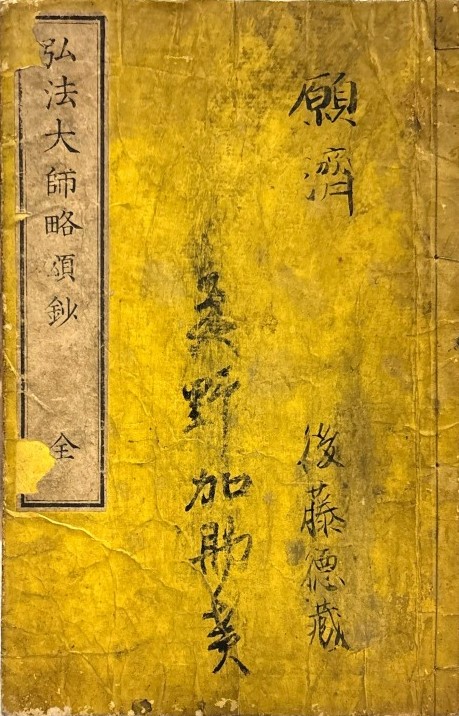 願濟
後藤徳藏
野加助
弘法大師略頌鈔 全